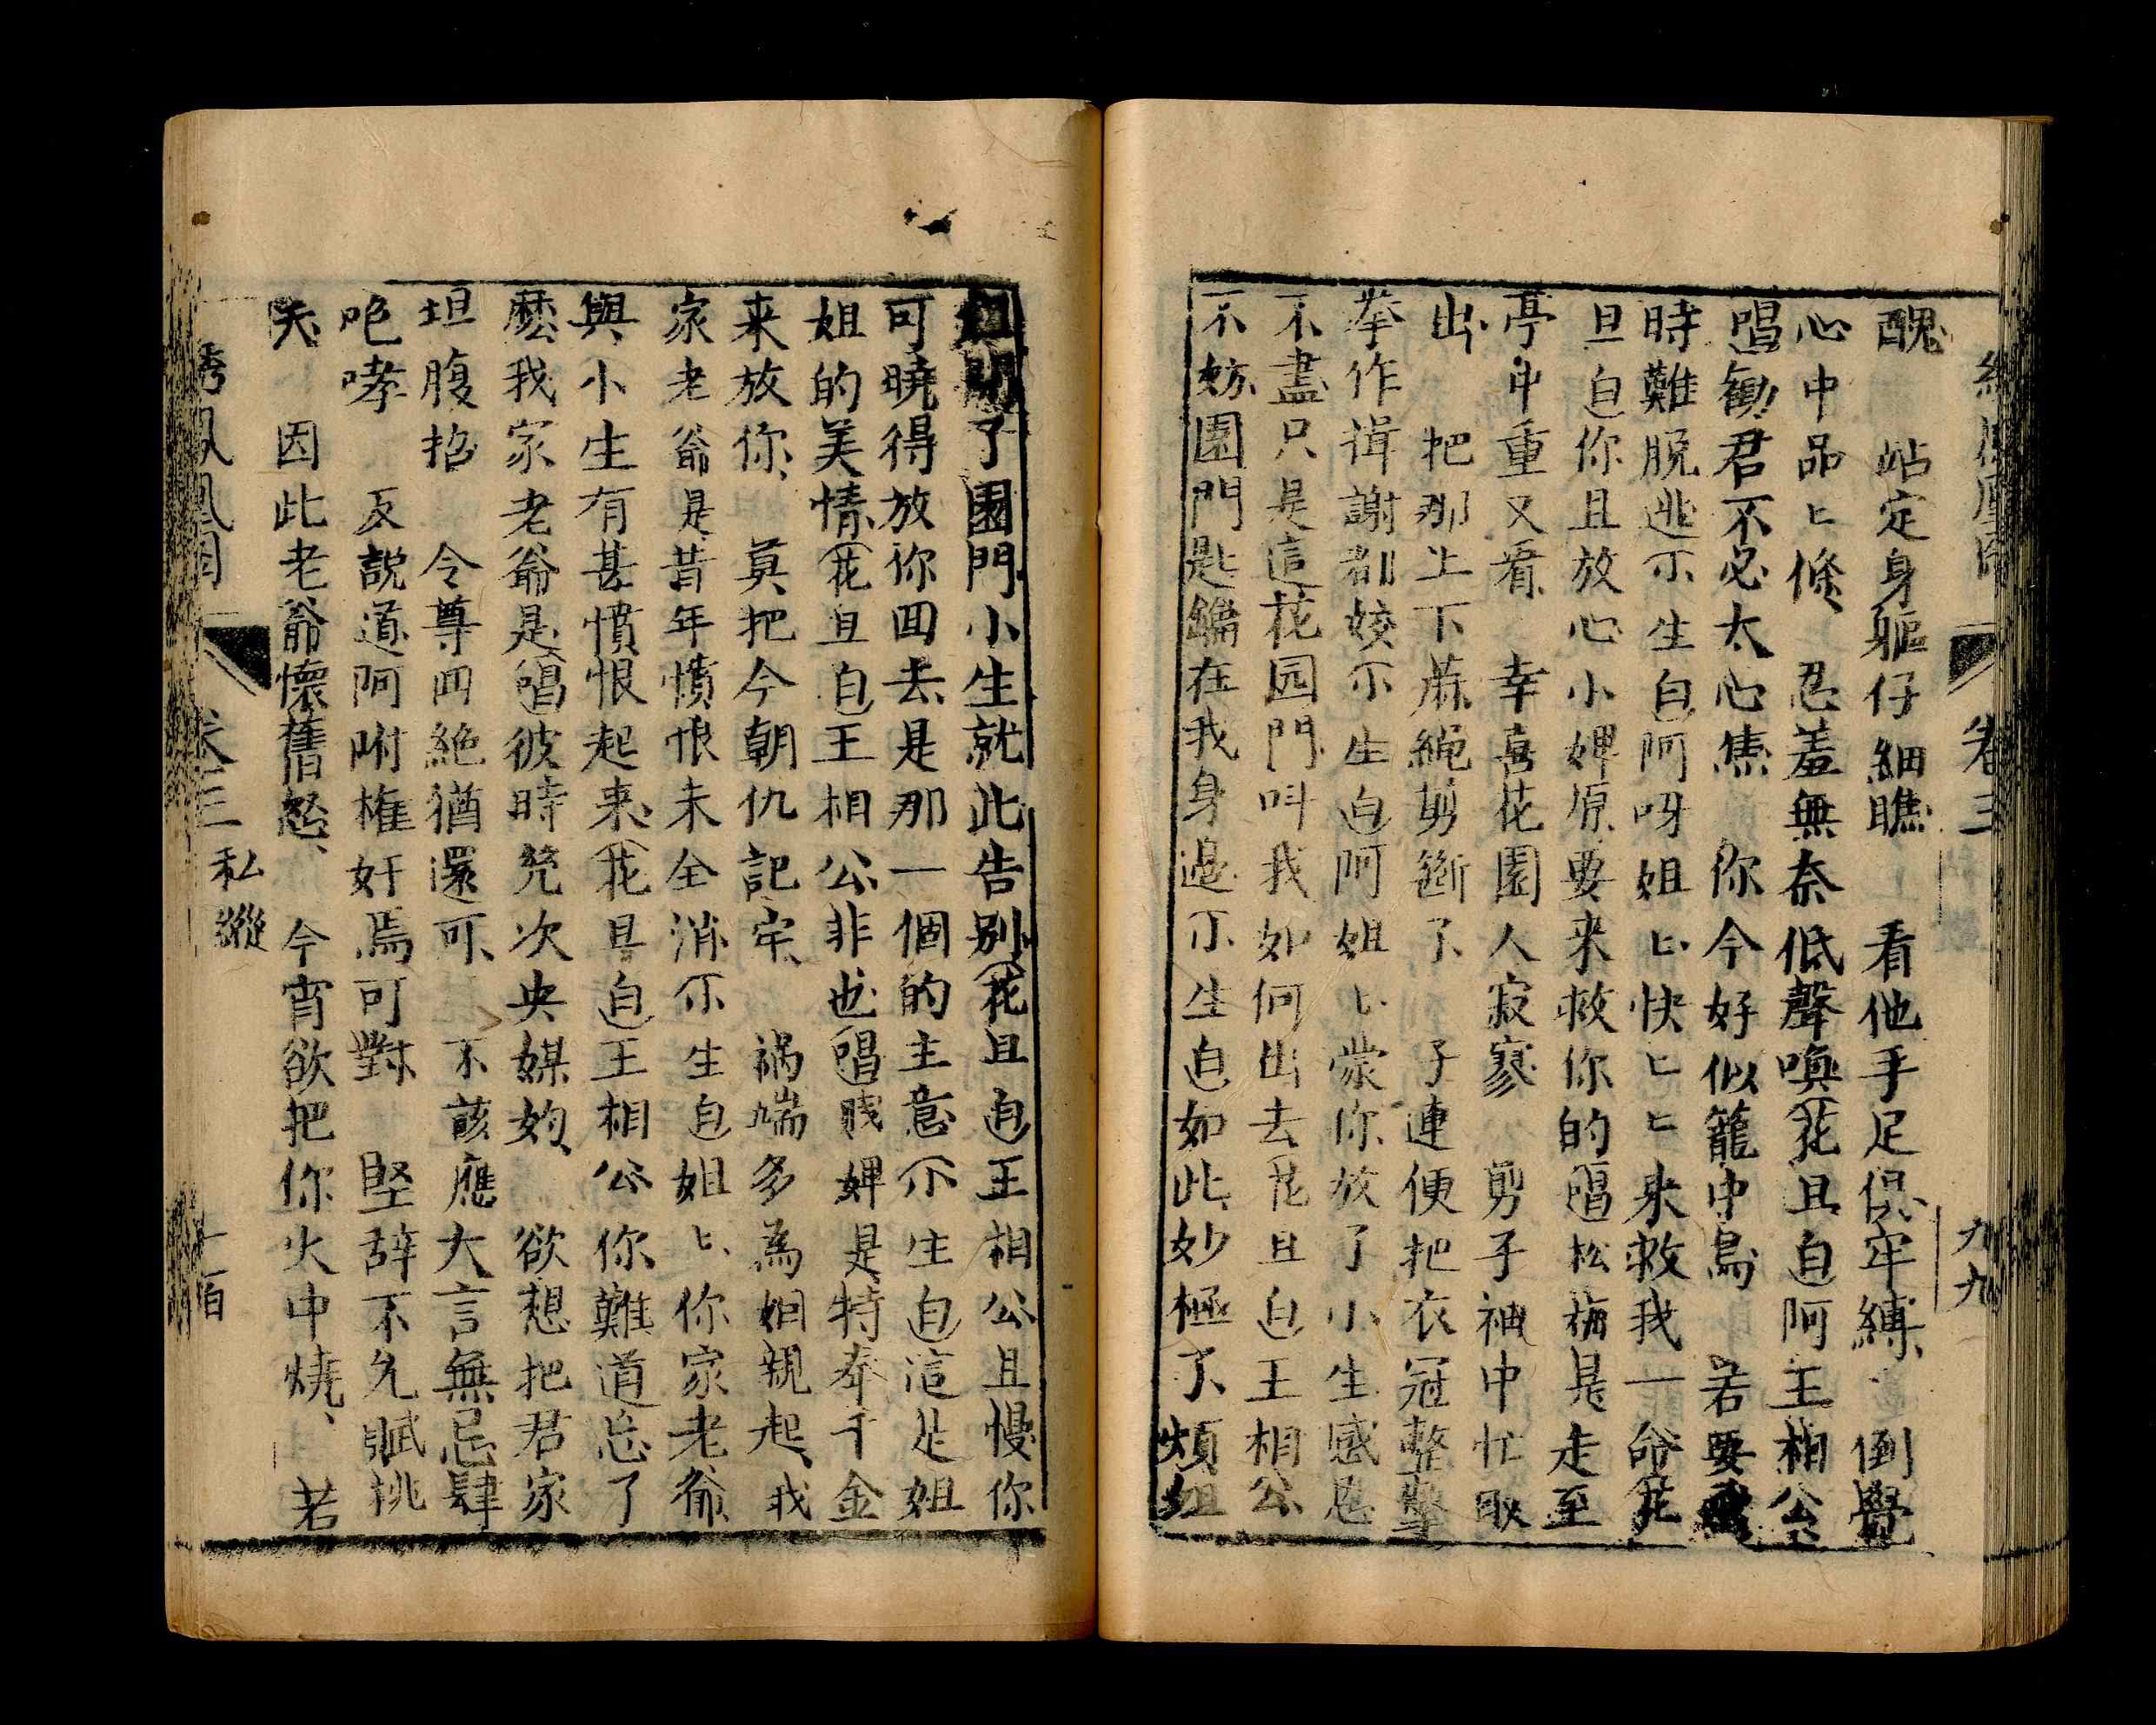 卷三
九九
醜 站定身軀仔細瞧 看他手足俱牢縛 倒覺
心中品匕條 忍羞無奈低聲喚花旦白阿王相公
唱勸君不必太心焦 你今好似籠中鳥 若要
時難脫逃小生白阿呀姐匕快匕匕来救我一命花
旦白你且放心小婢原要来救你的唱松梅是走至
亭中重又看 幸喜花園人寂寥 剪子袖中忙取
出 把那上下蔴繩剪斷了 子連便把衣冠整
拳作揖謝 姣小生白阿姐匕蒙你放了小生感恩
不盡只是這花园門叫我如何出去花旦白王相公
不妨園門匙鑰在我身邊小生白如此妙極了煩姐
姐開了園門小生就此告别花旦白王相公且慢你
可曉得放你回去是那一個的主意小生白這是姐
姐的美情花旦白王相公非也唱賤婢是特奉千金
来放你 莫把今朝仇記牢 禍端多為姻親起 我
家老爺是昔年憤恨未全消小生白姐匕你家老爺
與小生有甚憤恨起来花旦白王相公你難道忘了
麽我家老爺是唱彼時凭次央媒妁 欲想把君家
坦腹招 令尊回絶猶還可 不該應大言無忌肆
咆哮 反説道阿附權奸焉可對 堅辞不允賦桃
夭 因此老爺懷舊怒 今宵欲把你火中燒 若
綉鳳凰図 卷三 私縱 一百